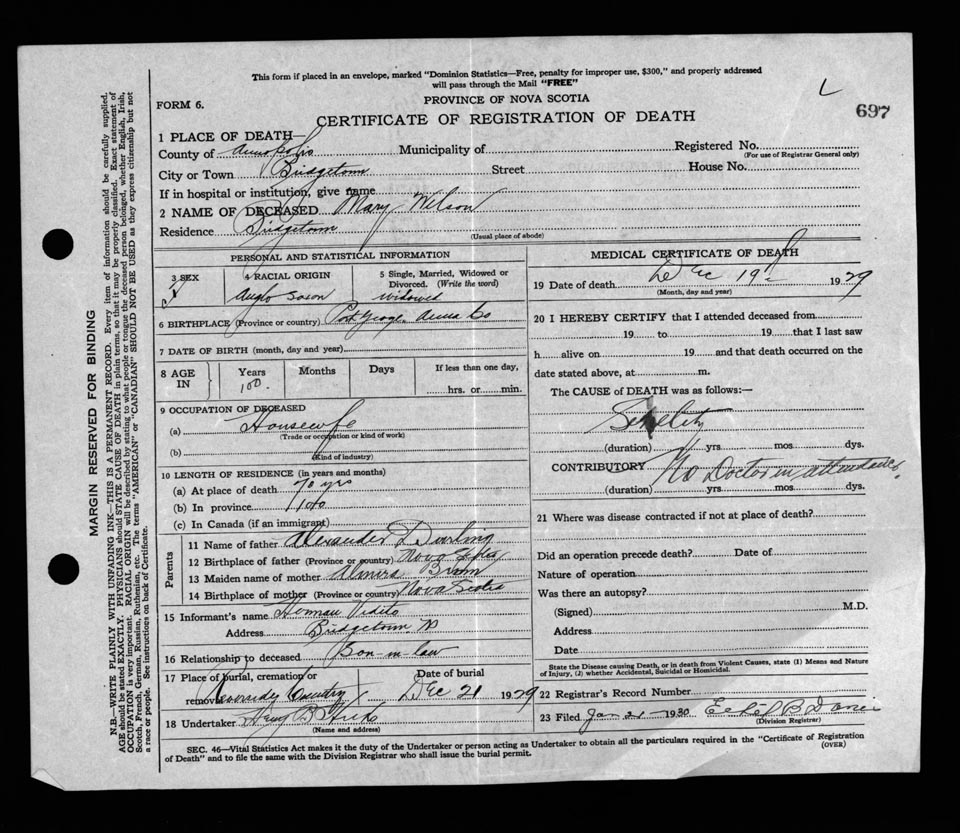 This form if placed in an envelope, marked "Dominion Statistics—Free, penalty for improper use, $300," and properly addressed
will pass through the Mail "FREE"
L
697
FORM 6.
PROVINCE OF NOVA SCOTIA
CERTIFICATE OF REGISTRATION OF DEATH
1 PLACE OF DEATH—
County of Annapolis Municipality of Registered No.
(For use of Registrar General only)
City or Town Bridgetown Street House No.
If in hospital or institution, give name
2 NAME OF DECEASED Mary Wilson
Residence Bridgetown
(Usual place of abode)
PERSONAL AND STATISTICAL INFORMATION
3 SEX
F
4 RACIAL ORIGIN
Anglo Saxon
5 Single, Married, Widowed or
Divorced. (Write the word)
Widowed
6 BIRTHPLACE (Province or country) Port George Anna Co
7 DATE OF BIRTH (month, day and year)
8 AGE
IN
Years
100
Months
Days
If less than one day,
hrs. or min.
9 OCCUPATION OF DECEASED
(a) Housewife
(Trade or occupation or kind of work)
(b)
(Kind of industry)
10 LENGTH OF RESIDENCE (in years and months)
(a) At place of death 70 yrs
(b) In province 100
(c) In Canada (if an immigrant)
Parents
11 Name of father Alexander
12 Birthplace of father (Province or country) Nova Scotia
13 Maiden name of mother
14 Birthplace of mother (Province or country) Nova Scotia
15 Informant's name Herman Vidito
Address Bridgetown
16 Relationship to deceased Son-in-law
17 Place of burial, cremation or
removal
Date of burial
Dec 21 1929
18 Undertaker Hicks
(Name and address)
MEDICAL CERTIFICATE OF DEATH
19 Date of death Dec 19 1929
(Month, day and year)
20 I HEREBY CERTIFY that I attended deceased from
19 to 19 that I last saw
h alive on 19 and that death occurred on the
date stated above, at m.
The CAUSE of DEATH was as follows:—
Senility
(duration) yrs mos dys.
CONTRIBUTORY No Doctor in attendance
(duration) yrs mos dys.
21 Where was disease contracted if not at place of death?
Did an operation precede death? Date of
Nature of operation
Was there an autopsy?
(Signed) M.D.
Address
Date
State the Disease causing Death, or in death from Violent Causes, state (1) Means and Nature
of Injury, (2) whether Accidental, Suicidal or Homicidal.
22 Registrar's Record Number
23 Filed Jan 1930 B
(Division Registrar)
SEC. 46—Vital Statistics Act makes it the duty of the Undertaker or person acting as Undertaker to obtain all the particulars required in the "Certificate of Registration
of Death" and to file the same with the Division Registrar who shall issue the burial permit.
(OVER)
MARGIN RESERVED FOR BINDING
N.B.—WRITE PLAINLY WITH UNFADING INK—THIS IS A PERMANENT RECORD. Every item of information should be carefully supplied.
AGE should be stated EXACTLY. PHYSICIANS should STATE CAUSE OF DEATH in plain terms, so that it may be properly classified. Exact statement of
OCCUPATION is very important. RACIAL ORIGIN will be described by stating to what people or tongue the deceased person belonged, whether English, Irish,
Scotch, French, German, Russian, Ruthenian, etc. The terms "AMERICAN" or "CANADIAN" SHOULD NOT BE USED as they express citizenship but not
a race or people. See instructions on back of Certificate.